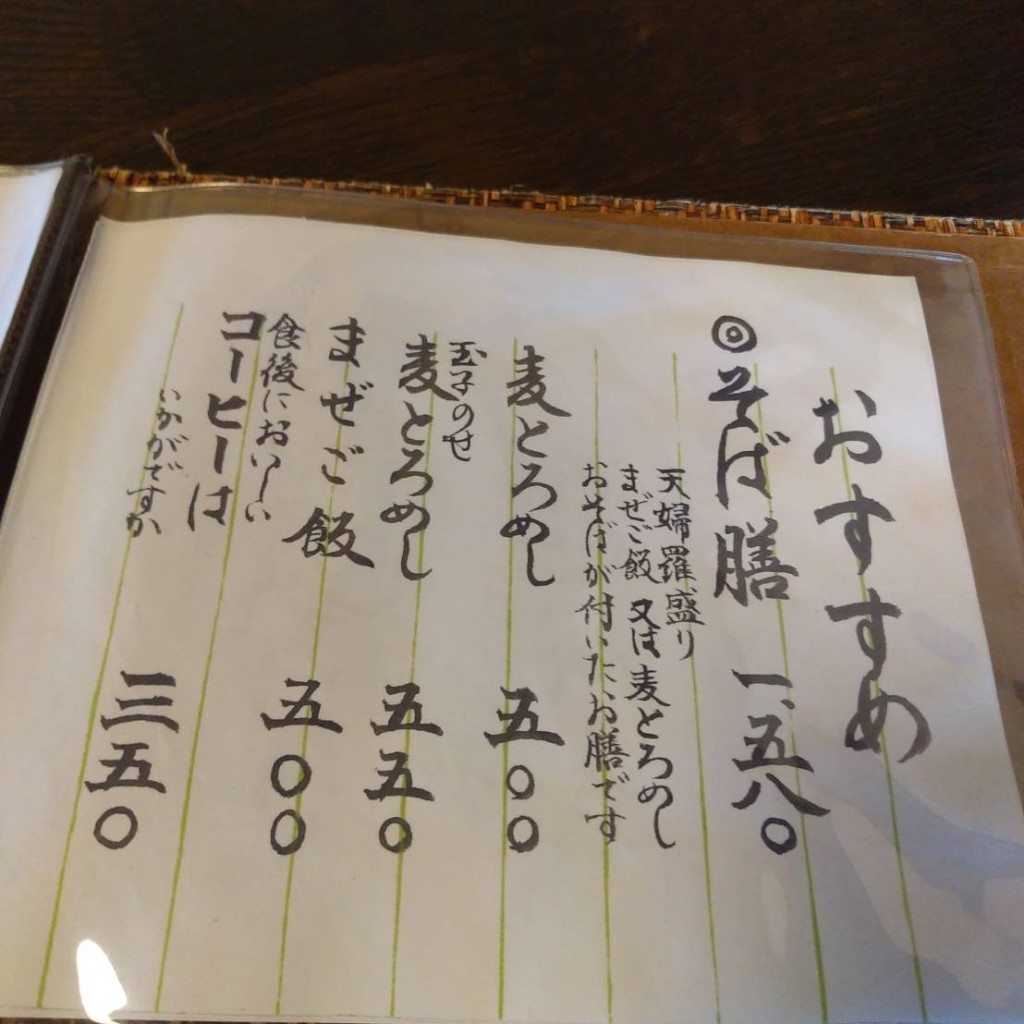 おすすめ
◎そば膳 一、五八〇
天婦羅盛り
まぜご飯 又は麦とろめし
おそばが付いたお膳です
麦とろめし 五〇〇
玉子のせ
麦とろめし 五五〇
まぜご飯 五〇〇
食後においしい
コーヒーは
いかがですか 三五〇